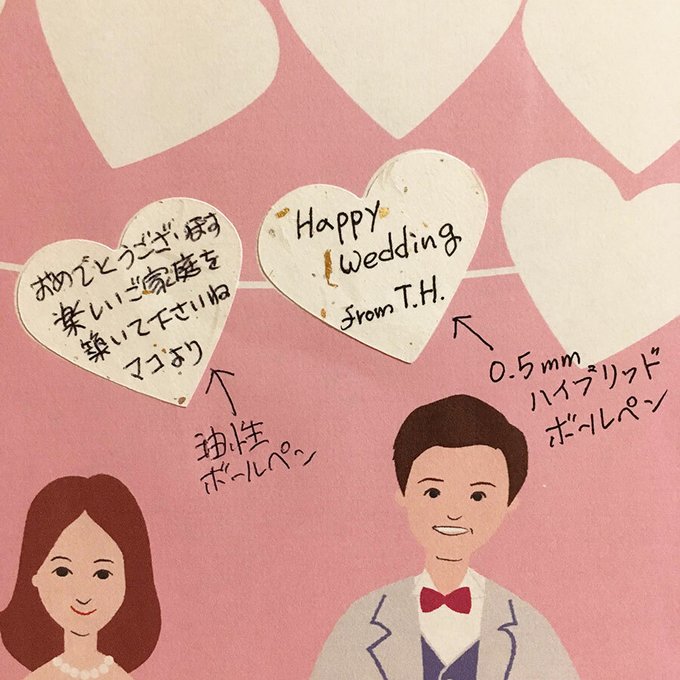 おめでとうございます
楽しいご家庭を
築いて下さいね
マコより
Happy
Wedding
from T.H.
油性
ボールペン
0.5mm
ハイブリッド
ボールペン